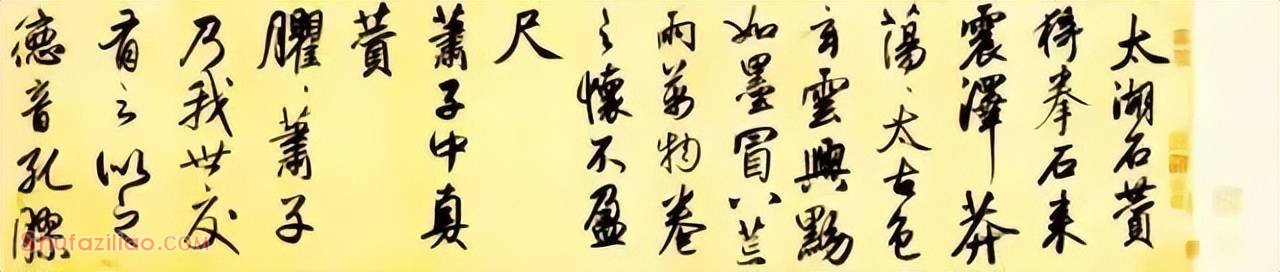 太湖石贊
猗拳石来
震澤莽
蕩、太古色
玄雲興黝
如墨冒八荒
雨萬物卷
之懷不盈
尺
蕭子中真
贊
臞、蕭子
乃我世友
有之似之
德音孔膠
@shufaziliao.com